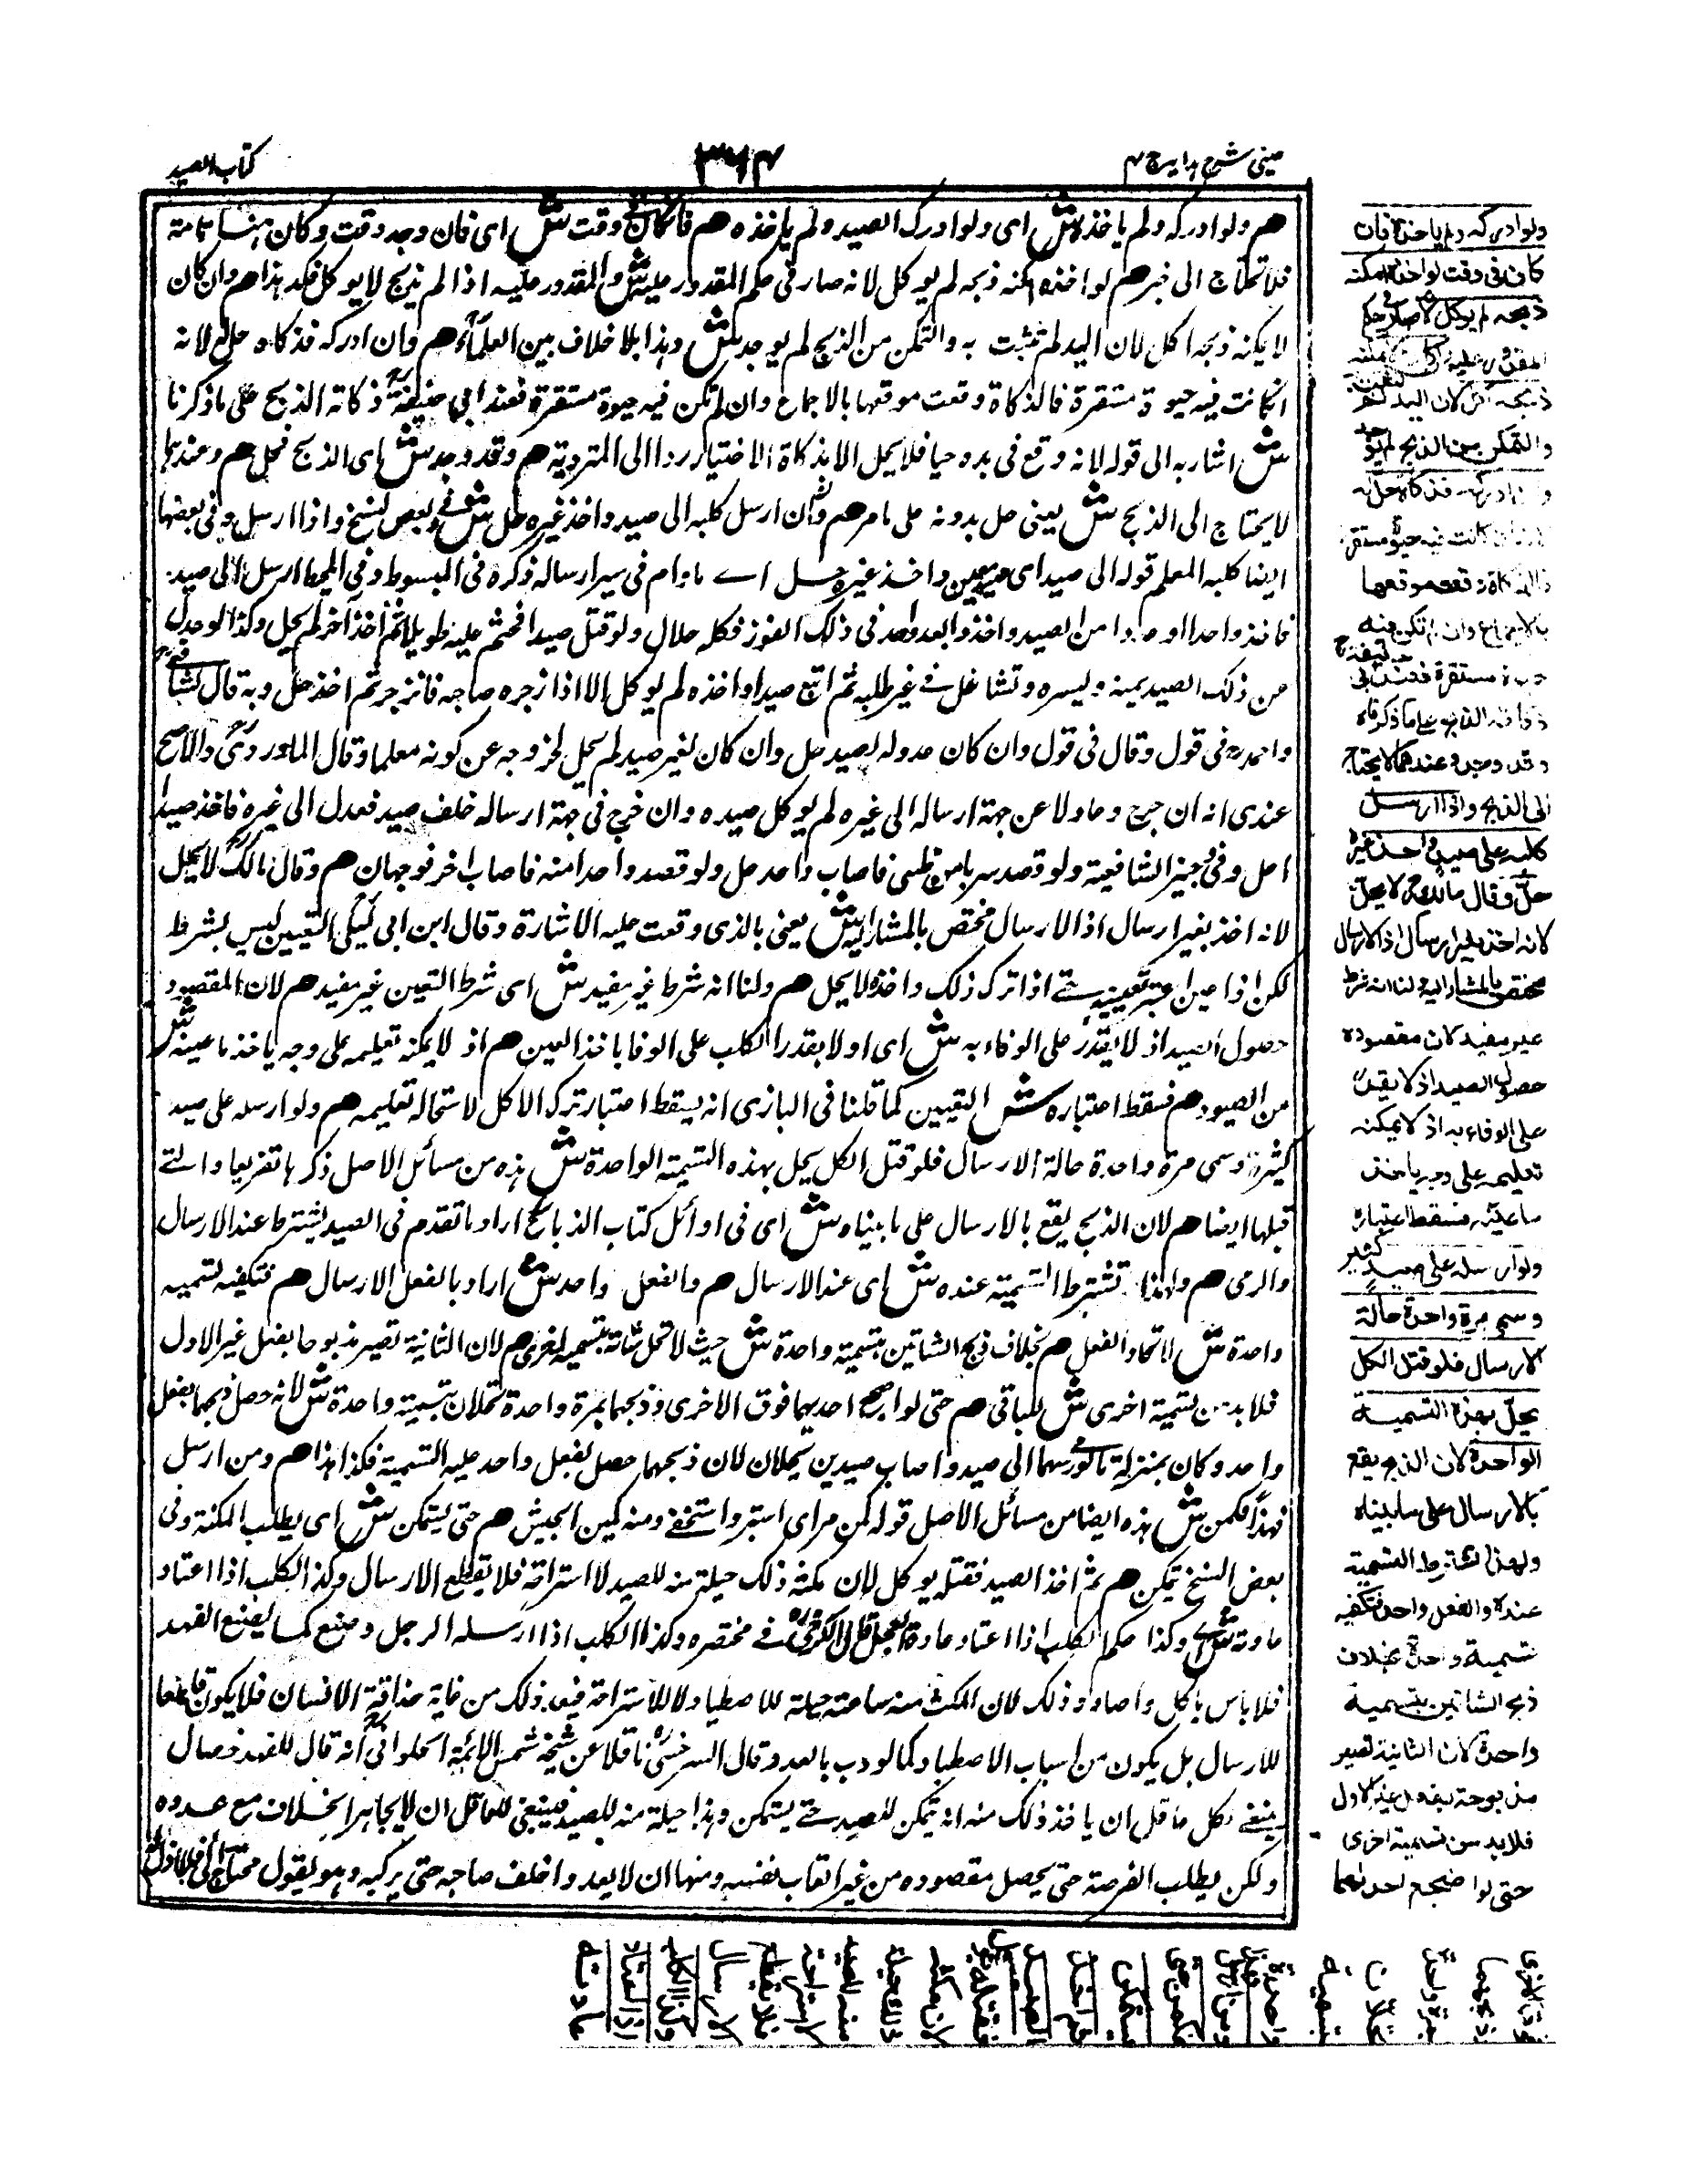 عينى شرح هدايہ ج ۴
كتاب الصيد
هم ولو ادركه ولم ياخذه ش اى ولو ادرك الصيد ولم ياخذه هم فان كان فى وقت ش اى فان وجد وقت وكان
فلا تحتاج الى خبر هم لو اخذه امكنه ذبحه لم يوكل لانه صار فى حكم المقدور عليه ش والمقدور عليه اذا لم يذبح لا يوكل فكذا هذا هم وان كان
لا يمكنه ذبحه اكل لان اليد لم تثبت به والتمكن من الذبح لم يوجد ش وهذا بلا خلاف بين العلماء هم وان ادركه فذكاه حل له لانه
انكانت فيه حيوة مستقرة فالذكاة وقعت موقعها بالاجماع وان لم تكن فيه حيوة مستقرة فعند ابى حنيفة ذكاته الذبح على ما ذكرنا
ش اشار به الى قوله لانه وقع فى يده حيا فلا يحل الا بذكاة الاختيار ردا الى المتردية هم وقد وجد ش اى الذبح فحل هم وعندهما
لا يحتاج الى الذبح ش يعنى حل بدونه على ما مر هم وان ارسل كلبه الى صيد واخذ غيره حل ش وفى بعض النسخ واذا ارسل وفى بعضها
ايضا كلبه المعلم قوله الى صيد اى صيد معين واخذ غيره حل اے ما دام فى سير ارساله ذكره فى المبسوط وفى المحيط ارسل الى صيد
فاخذ واحدا او صادا من الصيد واخذ واحدا بعد واحد فى ذلك الفور فكله حلال ولو قتل صيدا فجثم عليه طويلا ثم اخذ آخر لم يحل وكذا لو عدل
من ذلك الصيد يمينه ويسره وتشاغل فے غير طلبه ثم اتبع صيدا واخذه لم يوكل الا اذا زجره صاحبه فانزجر ثم اخذ حل وبه قال الشافعى
واحمد فى قول وقال فى قول وان كان عدوله لصيد حل وان كان لغير صيد لم يحل لخروجه عن كونه معلما وقال الماوردى والاصح
عندى انه ان خرج وعادلا عن جهة ارساله الى غيره لم يوكل صيده وان خرج فى جهة ارساله خلف صيد فعدل الى غيره فاخذ صيدا
احل وفى وجيز الشافعية ولو قصد سربا من ظبى فاصاب واحد حل ولو قصد واحدا منه فاصاب اخر فوجهان هم وقال مالك لا يحل
لانه اخذ بغير ارسال اذ الارسال مختص بالمشار اليه ش يعنى بالذى وقعت عليه الاشارة وقال ابن ابى ليلى التعيين ليس بشرط
لكن اذا عين اعتبر تعيينه حتے اذا ترك ذلك واخذه لا يحل هم ولنا انه شرط غير مفيد ش اى شرط التعين غير مفيد هم لان المقصود
حصول الصيد اذ لا يقدر على الوفاء به ش اى اولا يقدر الكلب على الوفا باخذ العين هم اذ لا يمكنه تعليمه على وجه ياخذ ما عينه ش
من الصيود هم فسقط اعتباره ش التعيين كما قلنا فى البازى انه يسقط اعتبار ترك الاكل لاستحالة تعليمه هم ولو ارسله على صيد
كثيرة وسمى مرة واحدة حالة الارسال فلو قتل الكل يحل بهذه التسمية الواحدة ش هذه من مسائل الاصل ذكرها تفريعا والتے
قبلها ايضا هم لان الذبح يقع بالارسال على ما بيناه ش اى فى اوائل كتاب الذبائح اراد ما تقدم فى الصيد يشترط عند الارسال
والرمى هم ولهذا تشترط التسمية عنده ش اى عند الارسال هم والفعل واحد ش اراد بالفعل الارسال هم فتكفيه تسمية
واحدة ش لاتحاد الفعل هم بخلاف ذبح الشاتين بتسمية واحدة ش حيث لا تحل شاة بتسمية اخرى هم لان الثانية تصير مذبوحا بفعل غير الاول
فلا بد من تسمية اخرى ش للباقى هم حتى لو اضجع احديهما فوق الاخرى وذبحهما بمرة واحدة تحلان بتسمية واحدة ش لانه حصل ذبحهما بفعل
واحد وكان بمنزلة ما لو رمى سهما الى صيد واصاب صيدين يحلان لان ذبحهما حصل بفعل واحد عليه التسمية فكذا هذا هم ومن ارسل
فهدا فكمن ش هذه ايضا من مسائل الاصل قوله كمن مراى استتر واستخفے ومنه كمين الجيش هم حتى يتمكن ش اى يطلب المكنة وفى
بعض النسخ تمكن هم ثم اخذ الصيد فقتله يوكل لان مكثه ذلك حيلة منه للصيد لا استراحة فلا يقطع الارسال وكذا الكلب اذا اعتاد
عادته ش اى وكذا حكم الكلب اذا اعتاد عادة الفهد قال الكرخى فے مختصره وكذا الكلب اذا ارسله الرجل وصنع كما يصنع الفهد
فلا باس باكل ما صاد وذلك لان المكث منه ساعة حيلة للاصطياد لا للاستراحة فيعد ذلك من غاية حذاقة الانسان فلا يكون قاطعا
للارسال بل يكون من اسباب الاصطياد كما لو دب بالعدو وقال السرخسى ناقلا عن شيخه شمس الائمة الحلوانى انه قال للفهد خصال
ينبغے لكل عاقل ان ياخذ ذلك منه انه يتمكن للصيد حتے يتمكن وهذا حيلة منه للصيد فينبغى للعاقل ان لا يجاهر الخلاف مع عدوه
ولكن يطلب الفرصة حتى يحصل مقصوده من غير اتعاب نفسه ومنها ان لا يعدو خلف صاحبه حتى يركبه وهو يقول محتاج الى
ولو ادركه ولم ياخذه فان
كان فى وقت لو اخذه امكنه
ذبحه لم يوكل لانه صار فى حكم
المقدور عليه وان لم يمكنه
ذبحه اكل لان اليد لم تثبت
والتمكن من الذبح لم يوجد
وان ادركه فذكاه حل له
لانه ان كانت فيه حيوة مستقرة
فالذكاة وقعت موقعها
بالاجماع وان لم تكن فيه
حيوة مستقرة فعند ابى حنيفة
ذكاته الذبح على ما ذكرناه
وقد وجد وعندهما لا يحتاج
الى الذبح واذا ارسل
كلبه على صيد واخذ غيره
حل وقال مالك لا يحل
لانه اخذ بغير ارسال اذ الارسال
مختص بالمشار اليه ولنا انه شرط
غير مفيد لان مقصوده
حصول الصيد اذ لا يقدر
على الوفاء به اذ لا يمكنه
تعليمه على وجه ياخذ
ما عينه فسقط اعتباره
ولو ارسله على صيد كثير
وسمى مرة واحدة حالة
الارسال فلو قتل الكل
يحل بهذه التسمية
الواحدة لان الذبح يقع
بالارسال على ما بيناه
ولهذا تشترط التسمية
عنده والفعل واحد فتكفيه
تسمية واحدة بخلاف
ذبح الشاتين بتسمية
واحدة لان الثانية تصير
مذبوحة بفعل غير الاول
فلا بد من تسمية اخرى
حتى لو اضجع احداهما
فوق الاخرى
وذبحهما
بمرة واحدة
تحلان
بتسمية
واحدة
ومن ارسل
فهدا فكمن
حتى يتمكن
ثم اخذ
الصيد
فقتله يوكل
لان مكثه
ذلك حيلة
منه للصيد
لا استراحة
فلا يقطع
الارسال
وكذا الكلب
اذا اعتاد
عادته